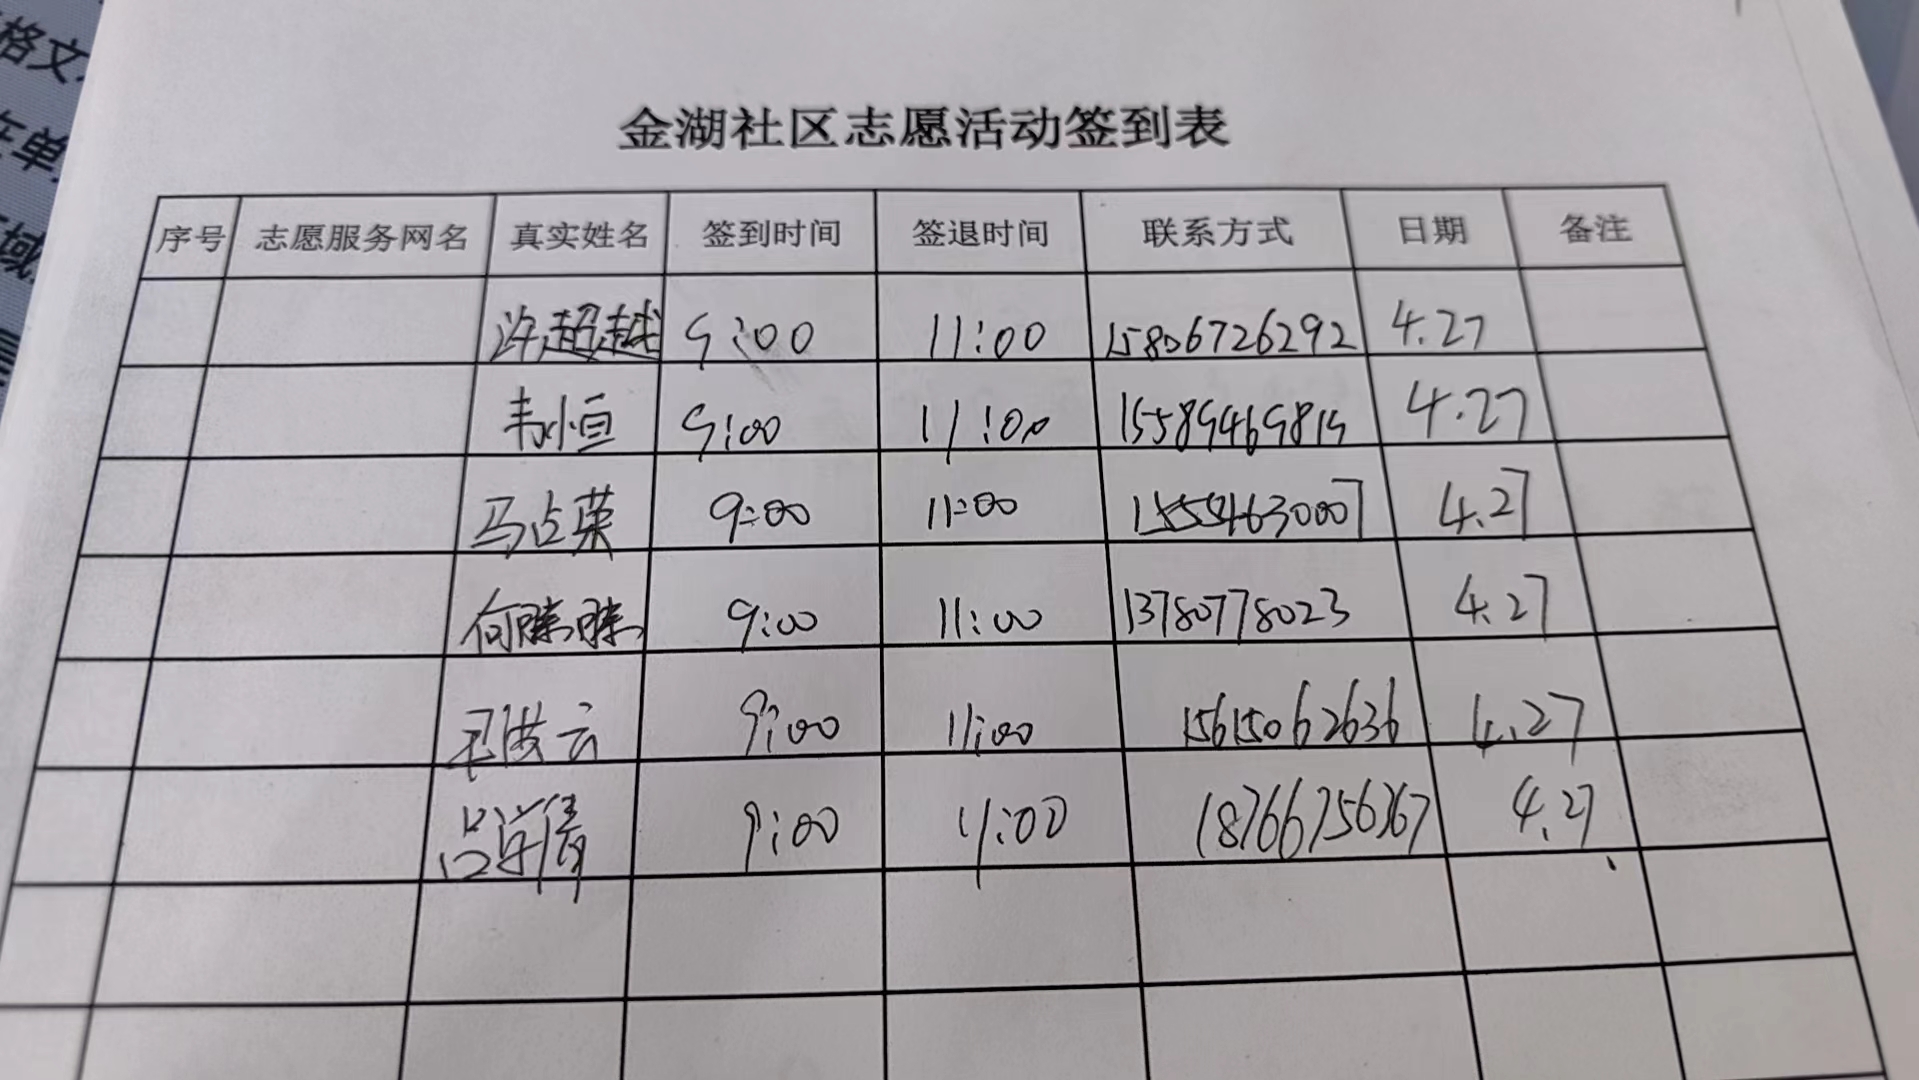 格文
在单
域
金湖社区志愿活动签到表
序号 志愿服务网名 真实姓名 签到时间 签退时间 联系方式 日期 备注
许超越 9:00 11:00 15806726292 4.27
韦恒 9:00 11:00 15589469819 4.27
马占英 9:00 11:00 15554630007 4.27
何 9:00 11:00 13780778023 4.27
洪云 9:00 11:00 15615062636 4.27
吕 9:00 11:00 18766756367 4.27